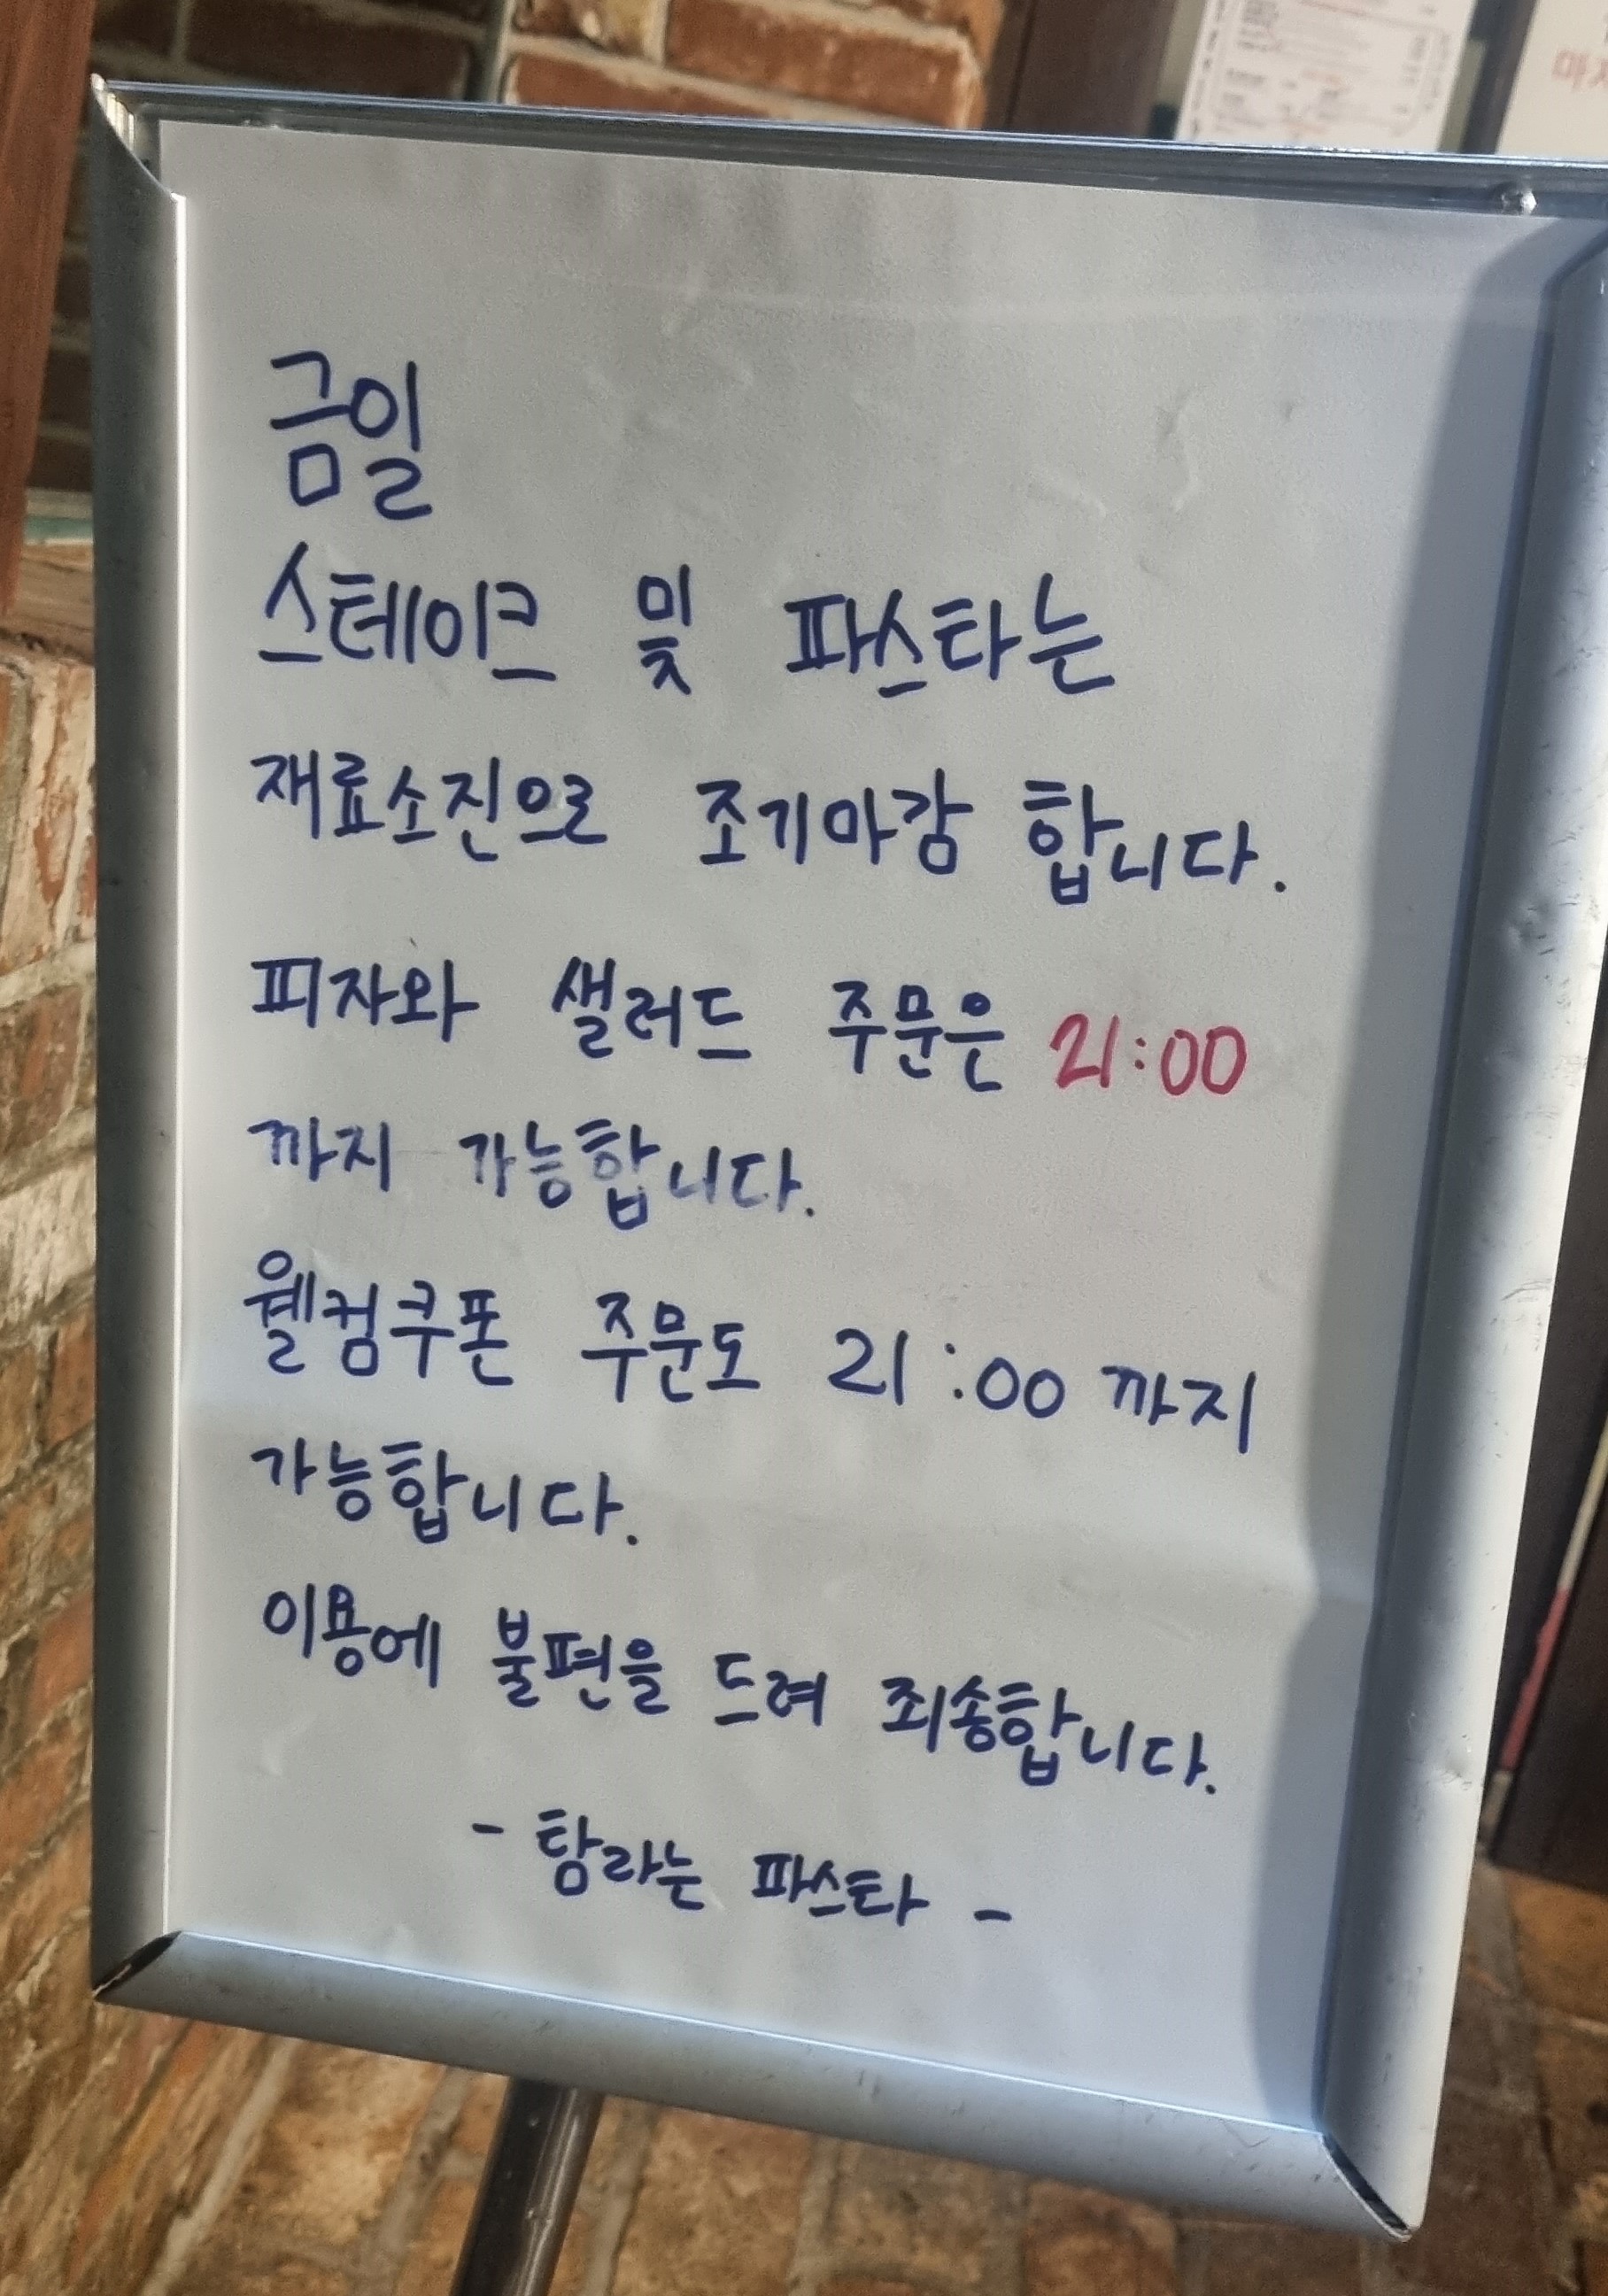 금일
스테이크 및 파스타는
재료소진으로 조기마감 합니다.
피자와 샐러드 주문은 21:00
까지 가능합니다.
웰컴쿠폰 주문도 21:00 까지
가능합니다.
이용에 불편을 드려 죄송합니다.
- 탐라는 파스타 -